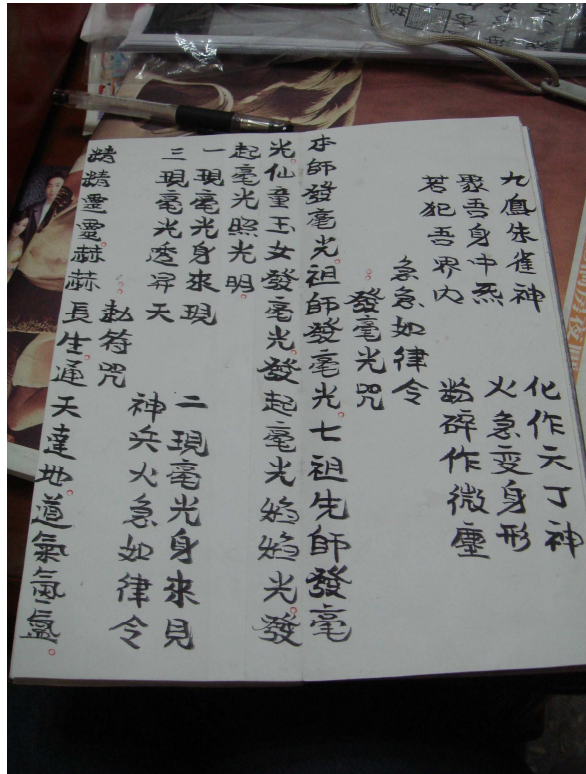 九鳳朱雀神　化作天丁神
聚吾身中炁　火急变身形
若犯吾界内　粉碎作微塵
急急如律令
發毫光咒
本師發毫光。祖師發毫光。七祖先師發毫
光。仙童玉女發毫光。發起毫光焰焰光。發
起毫光照光明。
一現毫光身來現　二現毫光身來見
三現毫光透昇天　神兵火急如律令
勅符咒
精精靈靈。赫赫長生。通天達地。道氣氤氳。